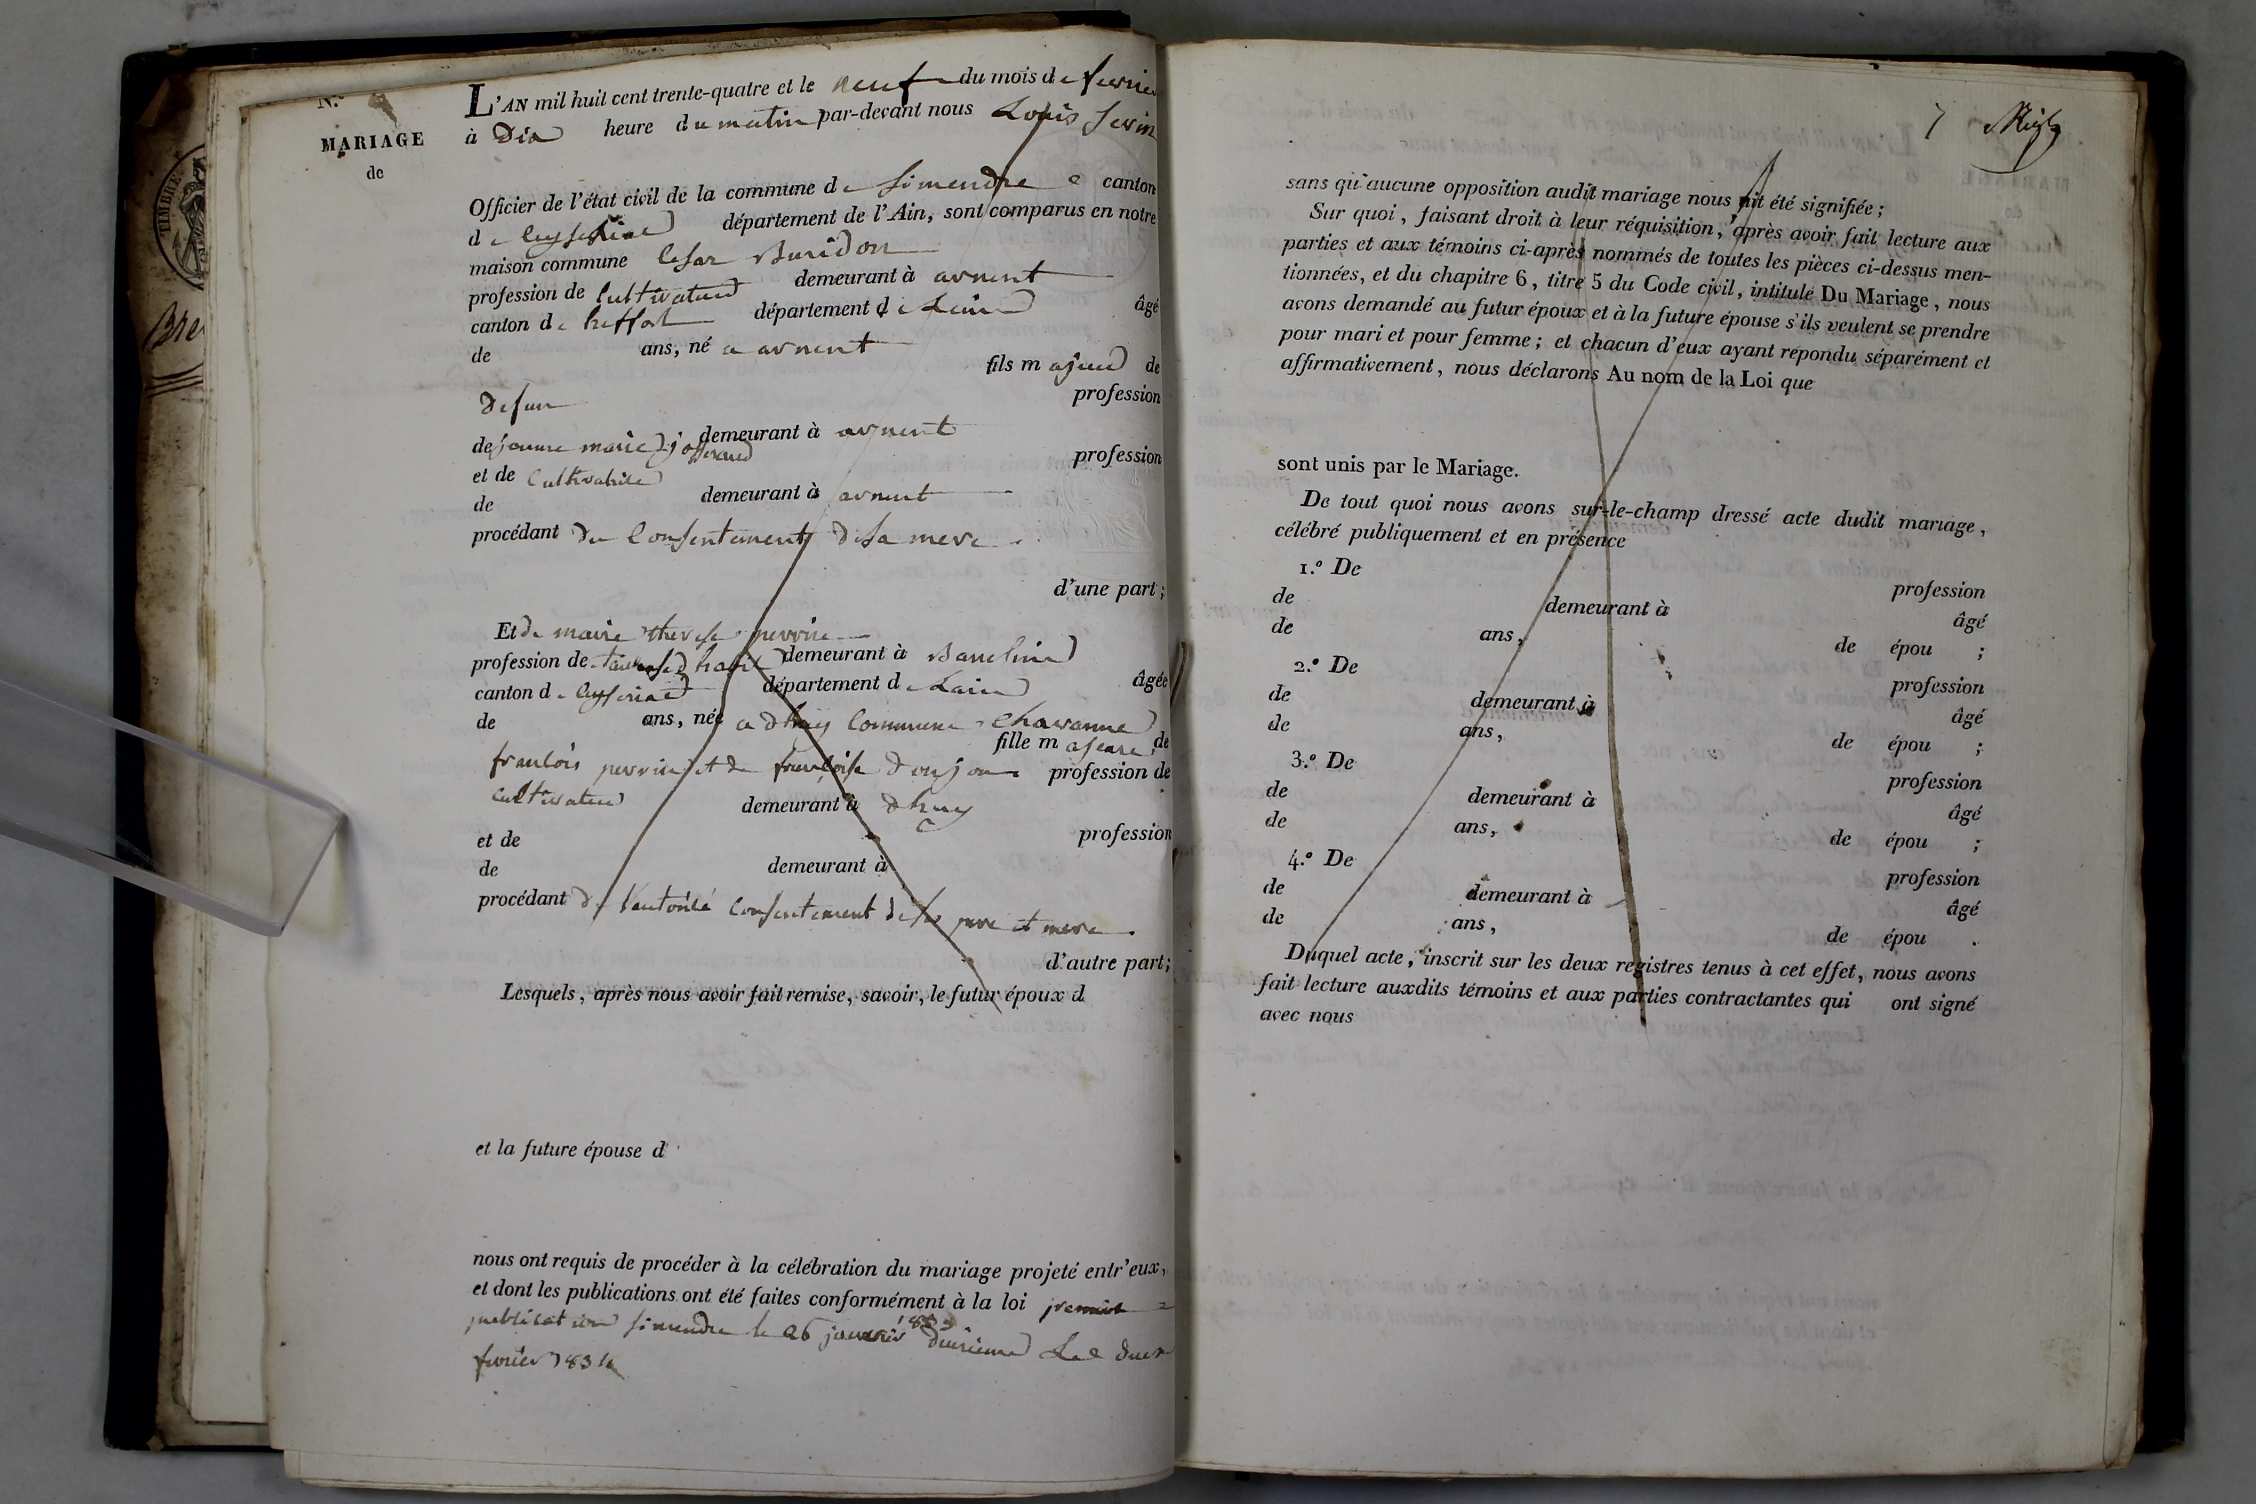 N.º
MARIAGE
de
TIMBRE
Bre
L'AN mil huit cent trente-quatre et le neuf du mois de fevrier
à Dix heure du matin par-devant nous Louis
Officier de l'état civil de la commune de Simendre canton
de département de l'Ain, sont comparus en notre
maison commune Cesar Buridon
profession de Cultivateur demeurant à arnent
canton de treffort département de Lain âgé
de ans, né a arnent
fils majeur de
defun profession
de jeanne marie demeurant à arnent
et de Cultivatrice profession
de demeurant à arnent
procédant du Consentement de sa mere
d'une part;
Et de marie therese perrin
profession de demeurant à
canton de département de Lain âgée
de ans, née a dhuy Commune Chavanne
fille majeure de
francois perrin et de françoise donjon profession de
cultivateur demeurant à dhuy
et de profession
de demeurant à
procédant de l'autorité Consentement de ses pere et mere
d'autre part;
Lesquels, après nous avoir fait remise, savoir, le futur époux d
et la future épouse d
nous ont requis de procéder à la célébration du mariage projeté entr'eux,
et dont les publications ont été faites conformément à la loi premiere
publication simendre le 26 janvier deuxieme Le deux
fevrier 1834
7
sans qu'aucune opposition audit mariage nous ait été signifiée;
Sur quoi, faisant droit à leur réquisition, après avoir fait lecture aux
parties et aux témoins ci-après nommés de toutes les pièces ci-dessus men-
tionnées, et du chapitre 6, titre 5 du Code civil, intitulé Du Mariage, nous
avons demandé au futur époux et à la future épouse s'ils veulent se prendre
pour mari et pour femme; et chacun d'eux ayant répondu séparément et
affirmativement, nous déclarons Au nom de la Loi que
sont unis par le Mariage.
De tout quoi nous avons sur-le-champ dressé acte dudit mariage,
célébré publiquement et en présence
1.º De profession
de demeurant à âgé
de ans, de épou ;
2.º De profession
de demeurant à âgé
de ans, de épou ;
3.º De profession
de demeurant à âgé
de ans, de épou ;
4.º De profession
de demeurant à âgé
de ans, de épou .
Duquel acte, inscrit sur les deux registres tenus à cet effet, nous avons
fait lecture auxdits témoins et aux parties contractantes qui ont signé
avec nous